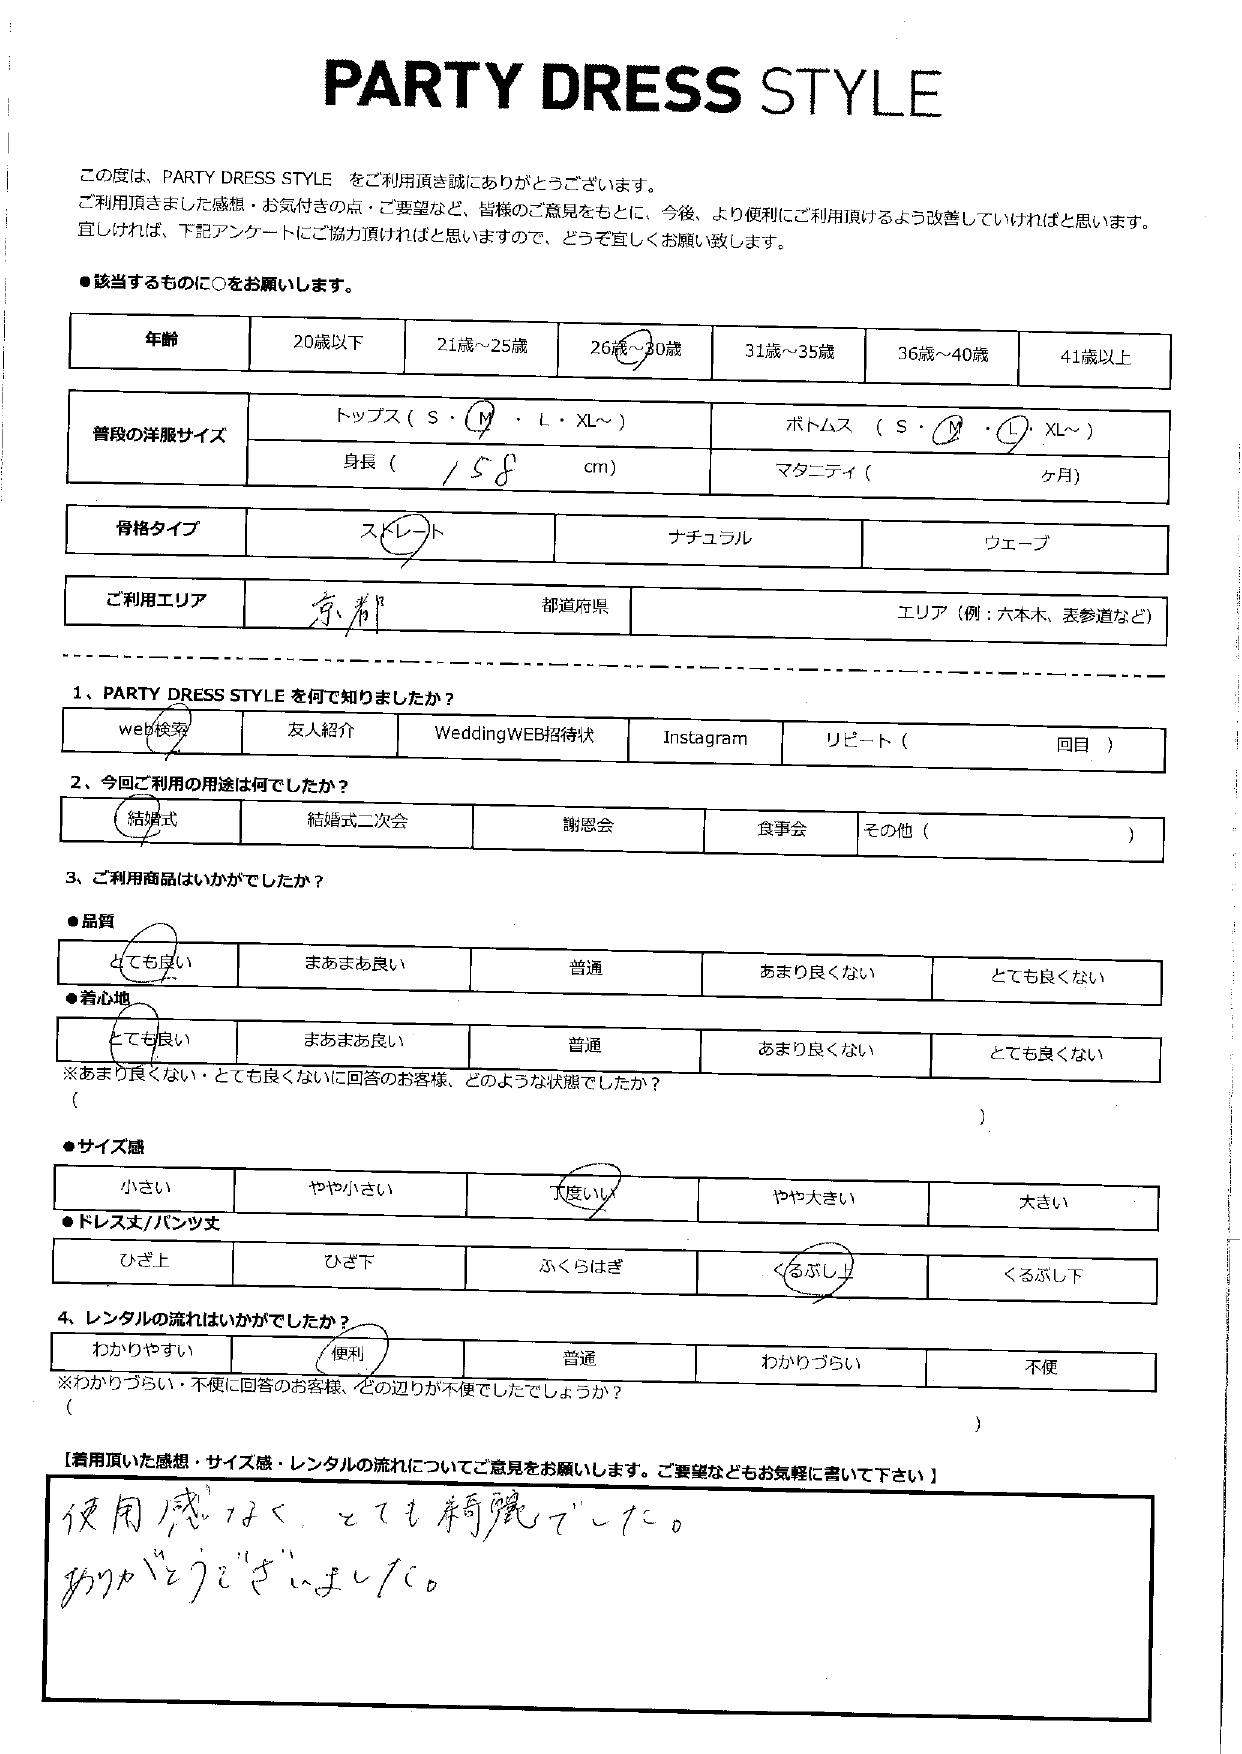 PARTY DRESS STYLE
この度は、PARTY DRESS STYLE をご利用頂き誠にありがとうございます。
ご利用頂きました感想・お気付きの点・ご要望など、皆様のご意見をもとに、今後、より便利にご利用頂けるよう改善していければと思います。
宜しければ、下記アンケートにご協力頂ければと思いますので、どうぞ宜しくお願い致します。
●該当するものに○をお願いします。
年齢 20歳以下 21歳～25歳 26歳～30歳 31歳～35歳 36歳～40歳 41歳以上
普段の洋服サイズ トップス ( S ・ M ・ L ・ XL～ ) ボトムス ( S ・ M ・ L ・ XL～ )
身長 ( 158 cm) マタニティ ( ヶ月)
骨格タイプ ストレート ナチュラル ウェーブ
ご利用エリア 京都 都道府県 エリア（例：六本木、表参道など）
1、PARTY DRESS STYLE を何で知りましたか？
web検索 友人紹介 WeddingWEB招待状 Instagram リピート ( 回目 )
2、今回ご利用の用途は何でしたか？
結婚式 結婚式二次会 謝恩会 食事会 その他 ( )
3、ご利用商品はいかがでしたか？
●品質
とても良い まあまあ良い 普通 あまり良くない とても良くない
●着心地
とても良い まあまあ良い 普通 あまり良くない とても良くない
※あまり良くない・とても良くないに回答のお客様、どのような状態でしたか？
( )
●サイズ感
小さい やや小さい 丁度いい やや大きい 大きい
●ドレス丈/パンツ丈
ひざ上 ひざ下 ふくらはぎ くるぶし上 くるぶし下
4、レンタルの流れはいかがでしたか？
わかりやすい 便利 普通 わかりづらい 不便
※わかりづらい・不便に回答のお客様、どの辺りが不便でしたでしょうか？
( )
【着用頂いた感想・サイズ感・レンタルの流れについてご意見をお願いします。ご要望などもお気軽に書いて下さい】
使用感なく とても綺麗でした。
ありがとうございました。